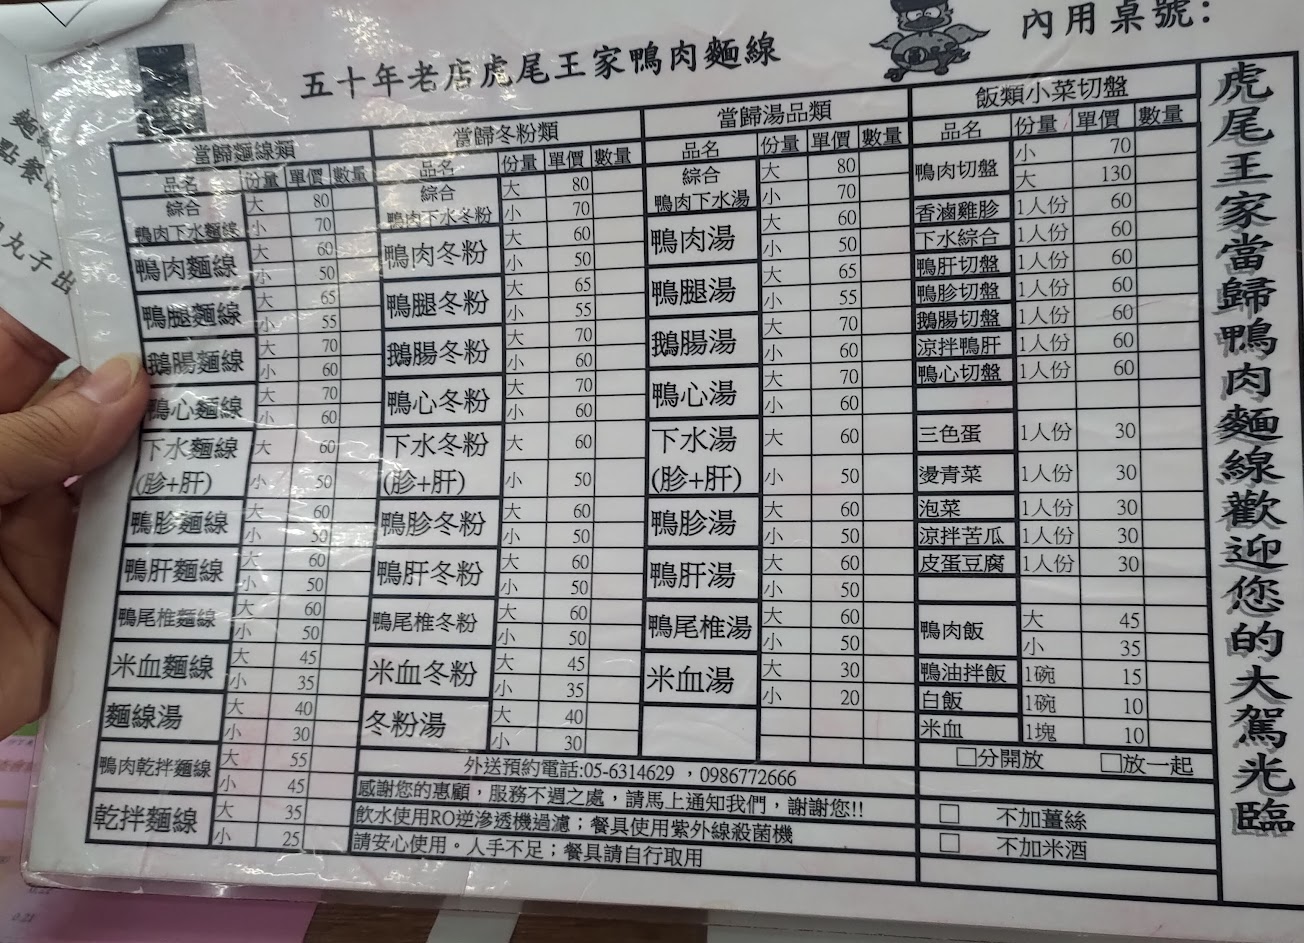 五十年老店虎尾王家鴨肉麵線
內用桌號:
當歸麵線類
品名 份量 單價 數量
綜合鴨肉下水麵線 大 80
小 70
鴨肉麵線 大 60
小 50
鴨腿麵線 大 65
小 55
鵝腸麵線 大 70
小 60
鴨心麵線 大 70
小 60
下水麵線(胗+肝) 大 60
小 50
鴨胗麵線 大 60
小 50
鴨肝麵線 大 60
小 50
鴨尾椎麵線 大 60
小 50
米血麵線 大 45
小 35
麵線湯 大 40
小 30
鴨肉乾拌麵線 大 55
小 45
乾拌麵線 大 35
小 25
當歸冬粉類
品名 份量 單價 數量
綜合鴨肉下水冬粉 大 80
小 70
鴨肉冬粉 大 60
小 50
鴨腿冬粉 大 65
小 55
鵝腸冬粉 大 70
小 60
鴨心冬粉 大 70
小 60
下水冬粉(胗+肝) 大 60
小 50
鴨胗冬粉 大 60
小 50
鴨肝冬粉 大 60
小 50
鴨尾椎冬粉 大 60
小 50
米血冬粉 大 45
小 35
冬粉湯 大 40
小 30
當歸湯品類
品名 份量 單價 數量
綜合鴨肉下水湯 大 80
小 70
鴨肉湯 大 60
小 50
鴨腿湯 大 65
小 55
鵝腸湯 大 70
小 60
鴨心湯 大 70
小 60
下水湯(胗+肝) 大 60
小 50
鴨胗湯 大 60
小 50
鴨肝湯 大 60
小 50
鴨尾椎湯 大 60
小 50
米血湯 大 30
小 20
飯類小菜切盤
品名 份量 單價 數量
鴨肉切盤 小 70
大 130
香滷雞胗 1人份 60
下水綜合 1人份 60
鴨肝切盤 1人份 60
鴨胗切盤 1人份 60
鵝腸切盤 1人份 60
涼拌鴨肝 1人份 60
鴨心切盤 1人份 60
三色蛋 1人份 30
燙青菜 1人份 30
泡菜 1人份 30
涼拌苦瓜 1人份 30
皮蛋豆腐 1人份 30
鴨肉飯 大 45
小 35
鴨油拌飯 1碗 15
白飯 1碗 10
米血 1塊 10
□分開放 □放一起
□ 不加薑絲
□ 不加米酒
外送預約電話:05-6314629 ，0986772666
感謝您的惠顧，服務不週之處，請馬上通知我們，謝謝您!!
飲水使用RO逆滲透機過濾；餐具使用紫外線殺菌機
請安心使用。人手不足；餐具請自行取用
虎尾王家當歸鴨肉麵線歡迎您的大駕光臨
丸子出
點餐